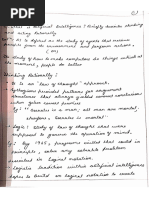 What is Artificial Intelligence? Briefly describe thinking
and acting rationally.
AI is defined as the study of agents that receive
percepts from the environment and perform actions.
study of how to make computers do things which at
the moment, people do better.
Thinking Rationally:
"law of thought" approach.
Syllogisms provided patterns for argument
structures that always yielded correct conclusions
when given correct premises
Eg: Socrates is a man; all men are mortal;
therefore, Socrates is mortal.
Logic: study of laws of thought that were
supposed to govern the operation of mind.
Eg: By 1965, programs existed that could in
principle, solve any solvable problem
presented in logical notation.
Logicist tradition within artificial intelligence
hopes to build on logical notation to create